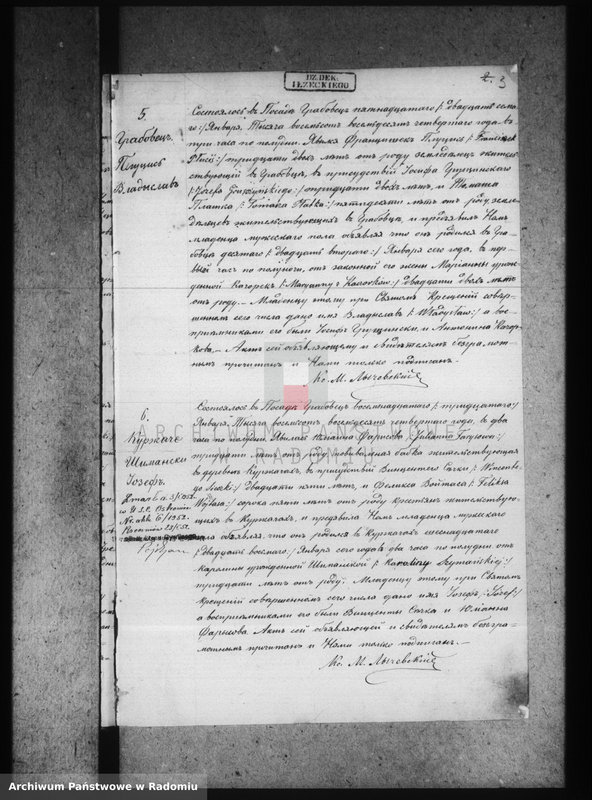 DZ.DEK.
IŁŻECKIEGO
3
5.
Грабовецъ.
Плуцись
Владиславъ
Состоялось въ Посадѣ Грабовецъ пятнадцатаго /: двадцать седьма-
го :/ Января, Тысяча восемьсотъ восемьдесятъ четвертаго года, въ
три часа по полудни. Явился Францишекъ Плуцись /: Franciszek
:/ тридцати двухъ лѣтъ отъ роду земледѣлецъ жительс-
ствующій въ Грабовцѣ, въ присутствіи Іосифа Грущинскаго
/: Józefa Gruszczyńskiego :/ тридцати двухъ лѣтъ, и Томаша
:/ пятидесяти лѣтъ отъ роду, земле-
дѣльцевъ жительствующихъ въ Грабовцѣ, и предъявилъ Намъ
младенца мужескаго пола объявляя что онъ родился въ Гра-
бовцѣ десятаго /: двадцать втораго :/ Января сего года, въ пер-
вый часъ по полуночи, отъ законной его жены Маріанны урож-
денной двадцати двухъ лѣтъ
отъ роду. — Младенцу этому при Святомъ Крещеніи совер-
шенномъ сего числа дано имя Владиславъ /: Władysław :/ а вос-
пріемниками его были Іосифъ Грущинскій и Антонина
Актъ сей объявляющему и свидѣтелямъ безграмот-
нымъ прочитанъ и Нами только подписанъ. —
Кс. М. Лычевскій
6.
Куржаче
Шимански
Іозефъ.
Zmarł d.
w U.S.C. Ostrowiec
Nr. akt. 6/1952.
Состоялось въ Посадѣ Грабовецъ восемнадцатаго /: тридцатаго :/
Января, Тысяча восемьсотъ восемьдесятъ четвертаго года, въ два
часа по полудни. Явилась Юліанна Фарысова /: Julianna Farysowa :/
тридцати лѣтъ отъ роду, повивальная бабка жительствующая
въ деревнѣ Куржачахъ, въ присутствіи Винцентего Сачки /: Wincente-
go Saczki :/ двадцати пяти лѣтъ, и Феликса Войтаса /: Feliksa
Wojtasa :/ сорока пяти лѣтъ отъ роду крестьянъ жительствую-
щихъ въ Куржачахъ, и предъявила Намъ младенца мужескаго
пола объявляя что онъ родился въ Куржачахъ шестнадцатаго
/: двадцать восьмаго :/ Января сего года въ два часа по полудни отъ
Каролины урожденной Шиманской /: Karoliny Szymańskiej :/
тридцати лѣтъ отъ роду. Младенцу этому при Святомъ
Крещеніи совершенномъ сего числа дано имя Іозефъ, /: Józef :/
а воспріемниками его были Винценты Сачка и Юліанна
Фарысова. Актъ сей объявляющей и свидѣтелямъ безгра-
мотнымъ прочитанъ и Нами только подписанъ. —
Кс. М. Лычевскій
ARCHIWUM PAŃSTWOWE
W RADOMIU
Archiwum Państwowe w Radomiu